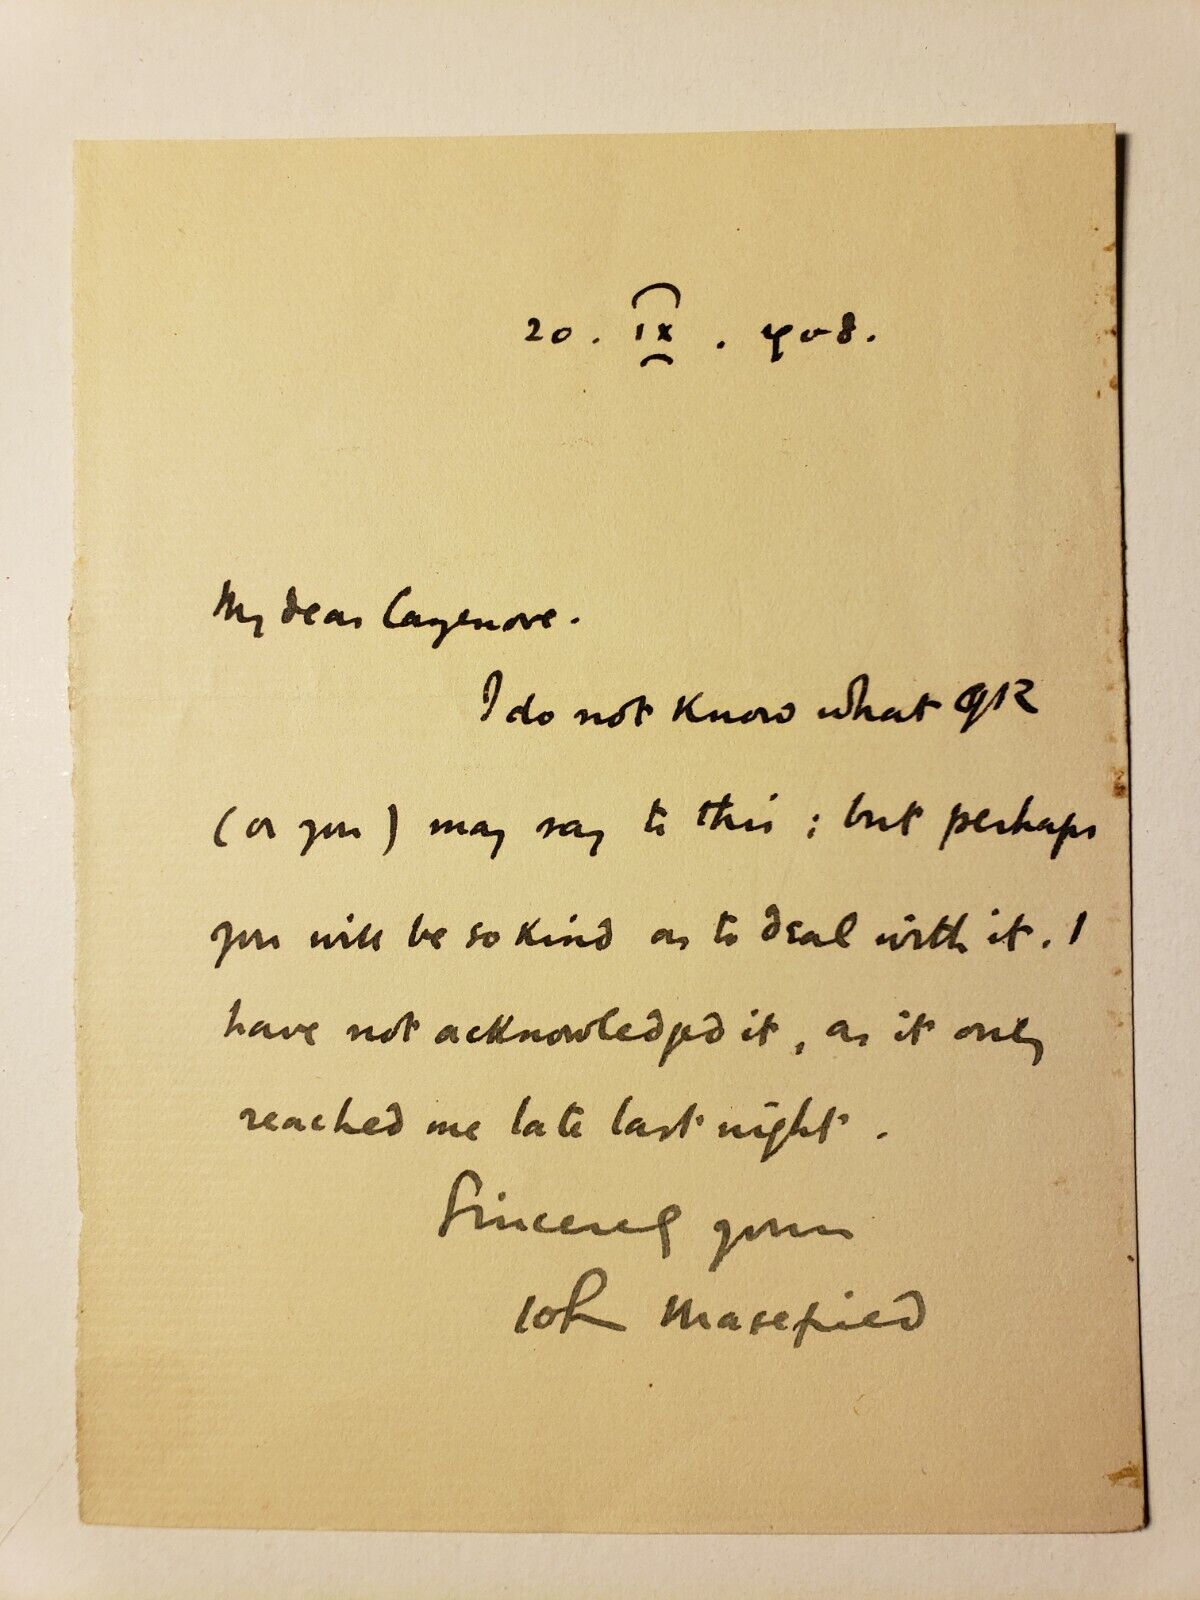 20. IX. 908.
My dear Cazenove.
I do not know what GR
(or you) may say to this; but perhaps
you will be so kind as to deal with it. I
have not acknowledged it, as it only
reached me late last night.
Sincerely yours
John Masefield